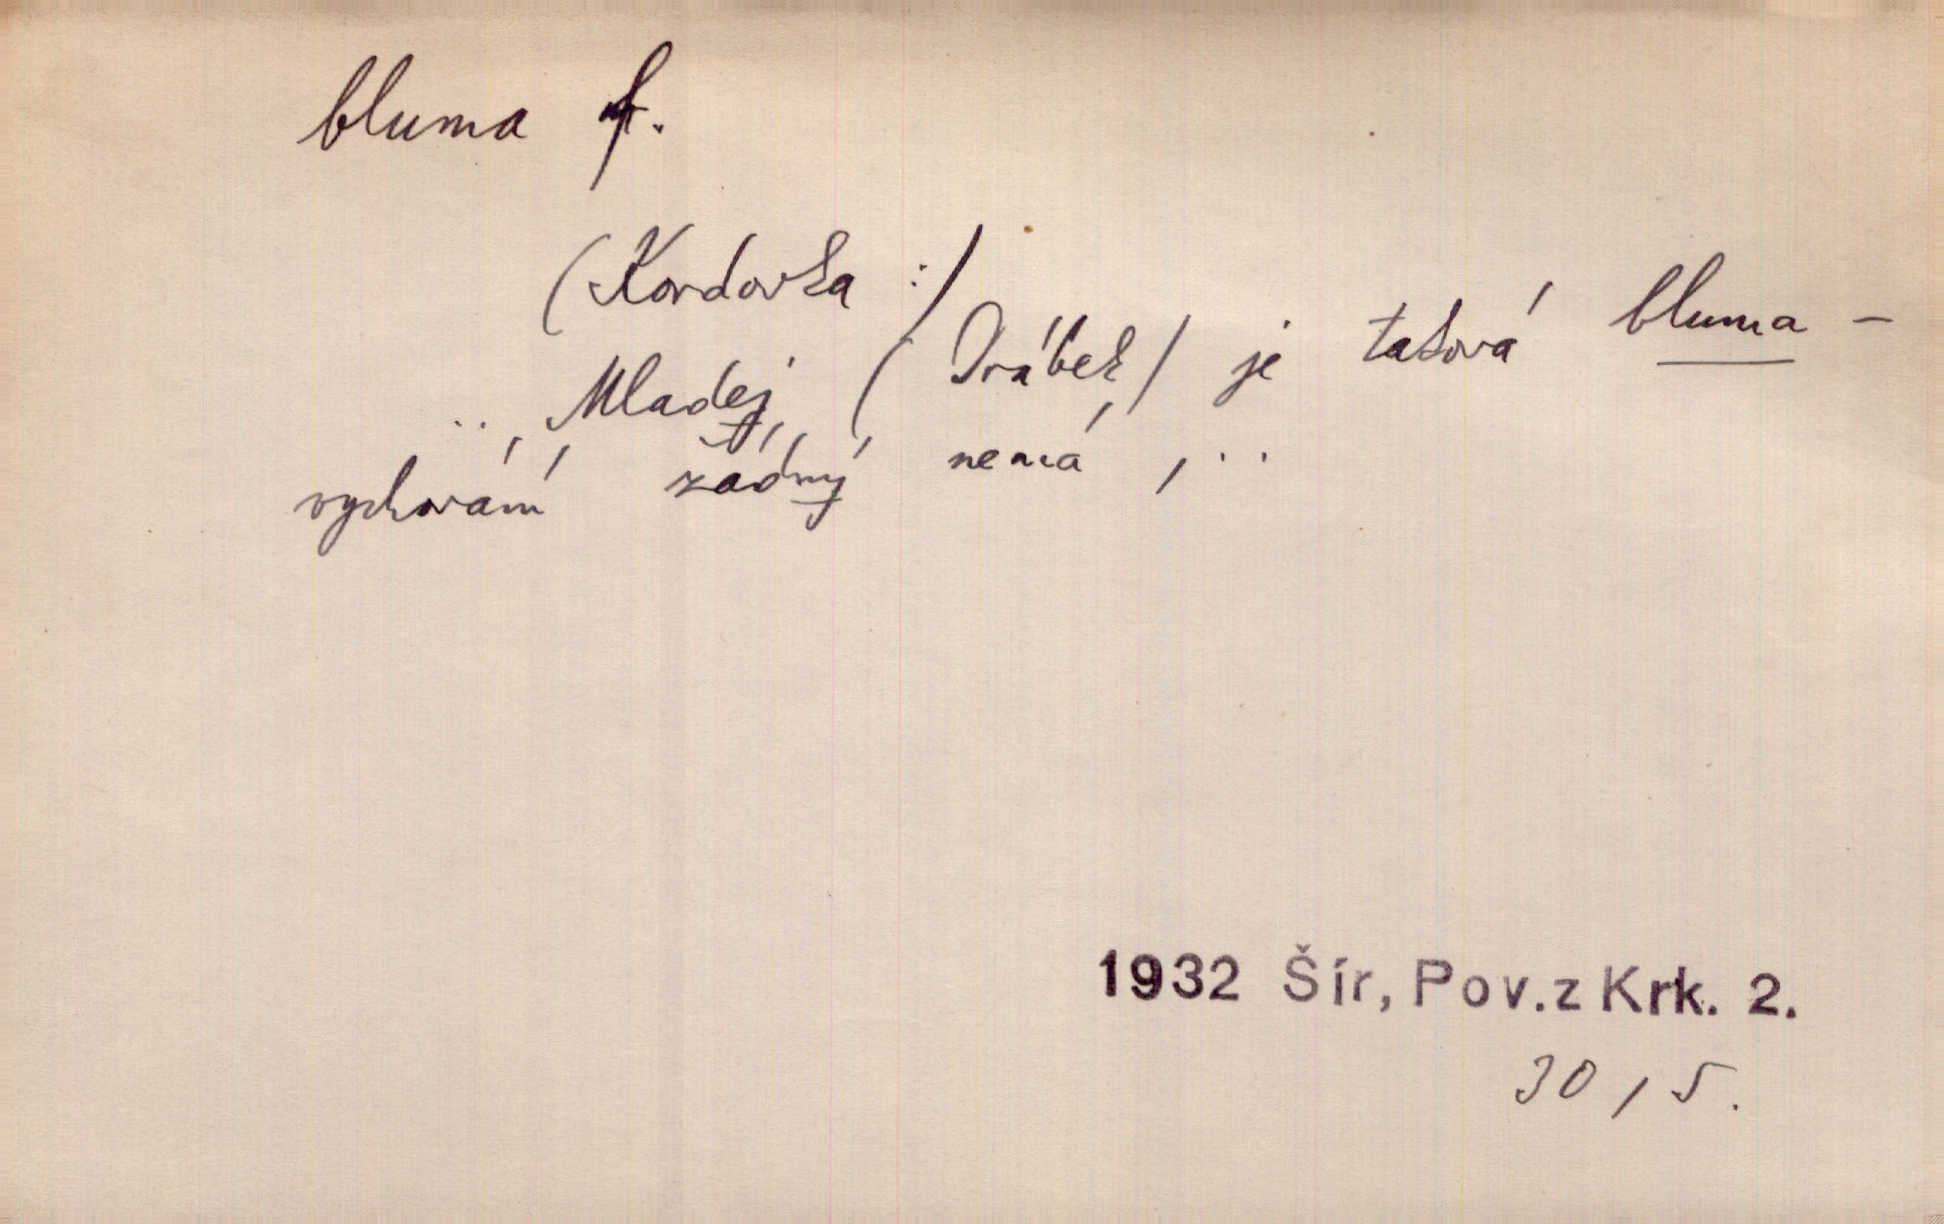 bluma f.
(Kordovka :)
.. Mladej (Drábek) je taková bluma –
vychování žádný nemá, ..
1932 Šír, Pov. z Krk. 2.
30, 5.